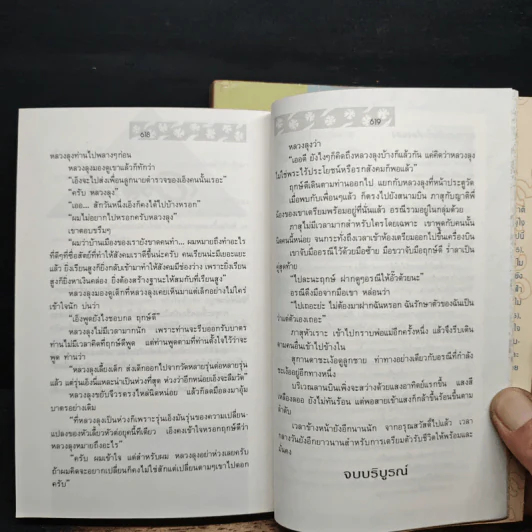 618
หลวงลุงท่านไปพลางๆก่อน
หลวงลุงมองดูเขาแล้วก็ทักว่า
"เอิงจะไปส่งเพื่อนลูกนายตำรวจของเอิงคนนั้นเรอะ"
"ครับ หลวงลุง"
"เออ... สักวันหนึ่งเอิงก็คงได้ไปบ้างหรอก"
"ผมไม่อยากไปหรอกครับหลวงลุง"
เขาตอบขรึมๆ
"ผมว่าบ้านเมืองของเรายังขาดคนทำ... ผมหมายถึงทำอะไร
ที่ดีๆที่ซื่อสัตย์ที่ทำให้สังคมเราดีขึ้นน่ะครับ คนเรียนน่ะมีเยอะแยะ
แล้ว ยิ่งเรียนสูงก็ยิ่งกลับเข้ามาทำให้สังคมมีช่องว่าง เพราะยิ่งเรียน
สูงก็ยิ่งหาเงินคล่อง ยิ่งต้องสร้างฐานะให้สมกับที่เรียนสูง"
หลวงลุงมองดูเด็กที่หลวงลุงเคยเห็นมาแต่เด็กอย่างไม่ใคร่
เข้าใจนัก บ่นว่า
"เอิงพูดยังไงชอบกล ฤกษ์ดี"
หลวงลุงไม่มีเวลามากนัก เพราะท่านจะรีบออกรับบาตร
ท่านไม่มีเวลาคิดที่ฤกษ์ดีพูด แต่ท่านพูดตามที่ท่านตั้งใจไว้ว่าจะ
พูด ท่านว่า
"หลวงลุงเลี้ยงเด็ก ส่งเด็กออกไปจากวัดหลายรุ่นต่อหลายรุ่น
แล้ว แต่รุ่นเอิงนี่แหละน่าเป็นห่วงที่สุด ห่วงว่าอีกหน่อยเอิงจะลืมวัด"
หลวงลุงขยับจีวรตรงไหล่นิดหน่อย แล้วก็ลดมือลงมาอุ้ม
บาตรอย่างเดิม
"ที่หลวงลุงเป็นห่วงก็เพราะรุ่นเอิงมันรุ่นของความเปลี่ยน-
แปลงของหัวเลี้ยวหัวต่อยุคนี้ทีเดียว เอิงคงเข้าใจหรอกฤกษ์ดีว่า
หลวงลุงหมายถึงอะไร"
"ครับ ผมเข้าใจ แต่สำหรับผม หลวงลุงอย่าห่วงเลยครับ
ถ้าผมคิดจะอยากเปลี่ยนก็คงไม่ใช่สักแต่เปลี่ยนตามๆเขาไปดอก
ครับ"
619
หลวงลุงว่า
"เออดี ยังไงๆก็คิดถึงหลวงลุงบ้างก็แล้วกัน แต่คิดว่าหลวงลุง
ไม่ใช่พระไร้ประโยชน์หรือรกสังคมก็พอแล้ว"
ฤกษ์ดีเดินตามท่านออกไป แยกกับหลวงลุงที่หน้าประตูวัด
เมื่อพบกับเพื่อนๆแล้ว ก็ตรงไปยังสนามบิน ภาสุกับญาติพี่
น้องของเขาเตรียมพร้อมอยู่ที่นั่นแล้ว อรณีรวมอยู่ในกลุ่มด้วย
ภาสุไม่มีเวลามากสำหรับใครโดยเฉพาะ เขาพูดกับคนนั้น
นิดคนนี้หน่อย จนกระทั่งถึงเวลาเข้าห้องเตรียมออกไปขึ้นเครื่องบิน
เขาจับมืออรณีไว้ด้วยมือซ้าย มือขวาจับมือฤกษ์ดี ร่ำลาเป็น
สุดท้าย
"ไปละนะฤกษ์ ฝากดูๆอรณีให้อั๊วด้วยนะ"
อรณีดึงมือจากมือเขา หล่อนว่า
"ไปเถอะย่ะ ไม่ต้องมาฝากฉันหรอก ฉันรักษาตัวของฉันเป็น
น่า
ภาสุหัวเราะ เข้าไปกราบพ่อแม่อีกครั้งหนึ่ง แล้วจึงรีบเดิน
ตามคนอื่นเข้าไปข้างใน
สุกานดาชะเง้อดูลูกชาย ท่าทางอย่างเดียวกับอรณีที่กำลัง
ชะเง้ออยู่อีกทางหนึ่ง
บริเวณลานบินเพิ่งจะสว่างด้วยแสงอาทิตย์แรกขึ้น แสงสี
เหลืองลออ ยังไม่ทันร้อน แต่พอสายเข้าแสงก็กล้าขึ้นร้อนขึ้นตาม
ลำดับ
เวลาข้างหน้ายังอีกนานนัก จากอรุณสวัสดิ์ไปแล้ว เวลา
กลางวันยังอีกยาวนานสำหรับการเตรียมตัวรับชีวิตให้พร้อมและ
มั่นคง
จบบริบูรณ์